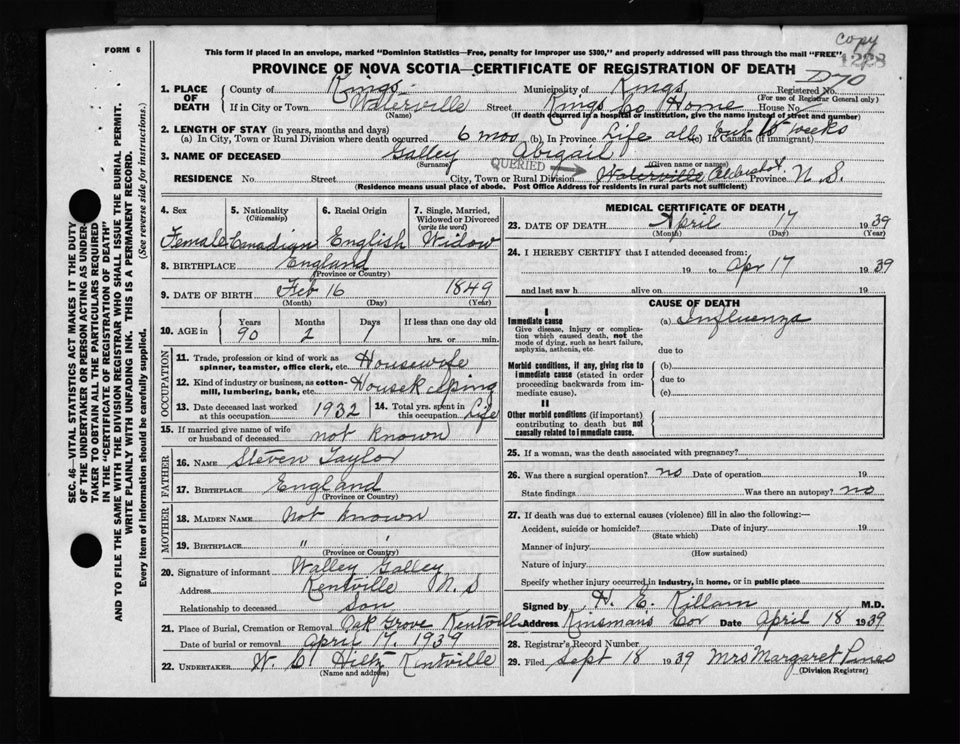 copy
1228
FORM 6
This form if placed in an envelope, marked "Dominion Statistics—Free, penalty for improper use $300," and properly addressed will pass through the mail "FREE"
PROVINCE OF NOVA SCOTIA—CERTIFICATE OF REGISTRATION OF DEATH
D70
1. PLACE OF DEATH
County of Kings Municipality of Kings Registered No.
(For use of Registrar General only)
If in City or Town Waterville Street Kings Co Home House No.
(Name) (If death occurred in a hospital or institution, give the name instead of street and number)
2. LENGTH OF STAY (in years, months and days)
(a) In City, Town or Rural Division where death occurred 6 mos (b) In Province Life all but 15 weeks (c) In Canada (if immigrant)
3. NAME OF DECEASED Galley Abigail
(Surname) (Given name or names)
QUERIED
RESIDENCE No. Street City, Town or Rural Division Waterville Province N.S.
(Residence means usual place of abode. Post Office Address for residents in rural parts not sufficient)
4. Sex Female
5. Nationality (Citizenship) Canadian
6. Racial Origin English
7. Single, Married, Widowed or Divorced (write the word) Widow
8. BIRTHPLACE England
(Province or Country)
9. DATE OF BIRTH Feb 16 1849
(Month) (Day) (Year)
10. AGE in Years Months Days If less than one day old
90 2 1 hrs. or min.
OCCUPATION
11. Trade, profession or kind of work as spinner, teamster, office clerk, etc. Housewife
12. Kind of industry or business, as cotton-mill, lumbering, bank, etc. Housekeeping
13. Date deceased last worked at this occupation 1932
14. Total yrs. spent in this occupation Life
15. If married give name of wife or husband of deceased not known
FATHER
16. NAME Steven Taylor
17. BIRTHPLACE England
(Province or Country)
MOTHER
18. MAIDEN NAME Not known
19. BIRTHPLACE " "
(Province or Country)
20. Signature of informant Walley Galley
Address Kentville N.S
Relationship to deceased Son
21. Place of Burial, Cremation or Removal Oak Grove Kentville
Date of burial or removal April 17. 1939
22. UNDERTAKER W. C Hiltz Kentville
(Name and address)
MEDICAL CERTIFICATE OF DEATH
23. DATE OF DEATH April 17 1939
(Month) (Day) (Year)
24. I HEREBY CERTIFY that I attended deceased from:
19 to Apr 17 1939
and last saw h alive on 19
CAUSE OF DEATH
I
Immediate cause
Give disease, injury or complication which caused death, not the mode of dying, such as heart failure, asphyxia, asthenia, etc.
(a) Influenza
due to
Morbid conditions, if any, giving rise to immediate cause (stated in order proceeding backwards from immediate cause).
(b)
due to
(c)
II
Other morbid conditions (if important) contributing to death but not causally related to immediate cause.
25. If a woman, was the death associated with pregnancy?
26. Was there a surgical operation? no Date of operation 19
State findings Was there an autopsy? no
27. If death was due to external causes (violence) fill in also the following:—
Accident, suicide or homicide? Date of injury 19
(State which)
Manner of injury
(How sustained)
Nature of injury
Specify whether injury occurred in industry, in home, or in public place
Signed by H. E. Killam M.D.
Address Kinsmans Cor Date April 18 1939
28. Registrar's Record Number
29. Filed Sept 18 1939 Mrs Margaret
(Division Registrar)
SEC. 46—VITAL STATISTICS ACT MAKES IT THE DUTY
OF THE UNDERTAKER OR PERSON ACTING AS UNDER-
TAKER TO OBTAIN ALL THE PARTICULARS REQUIRED
IN THE "CERTIFICATE OF REGISTRATION OF DEATH"
AND TO FILE THE SAME WITH THE DIVISION REGISTRAR WHO SHALL ISSUE THE BURIAL PERMIT.
WRITE PLAINLY WITH UNFADING INK. THIS IS A PERMANENT RECORD.
Every item of information should be carefully supplied. (See reverse side for instructions.)